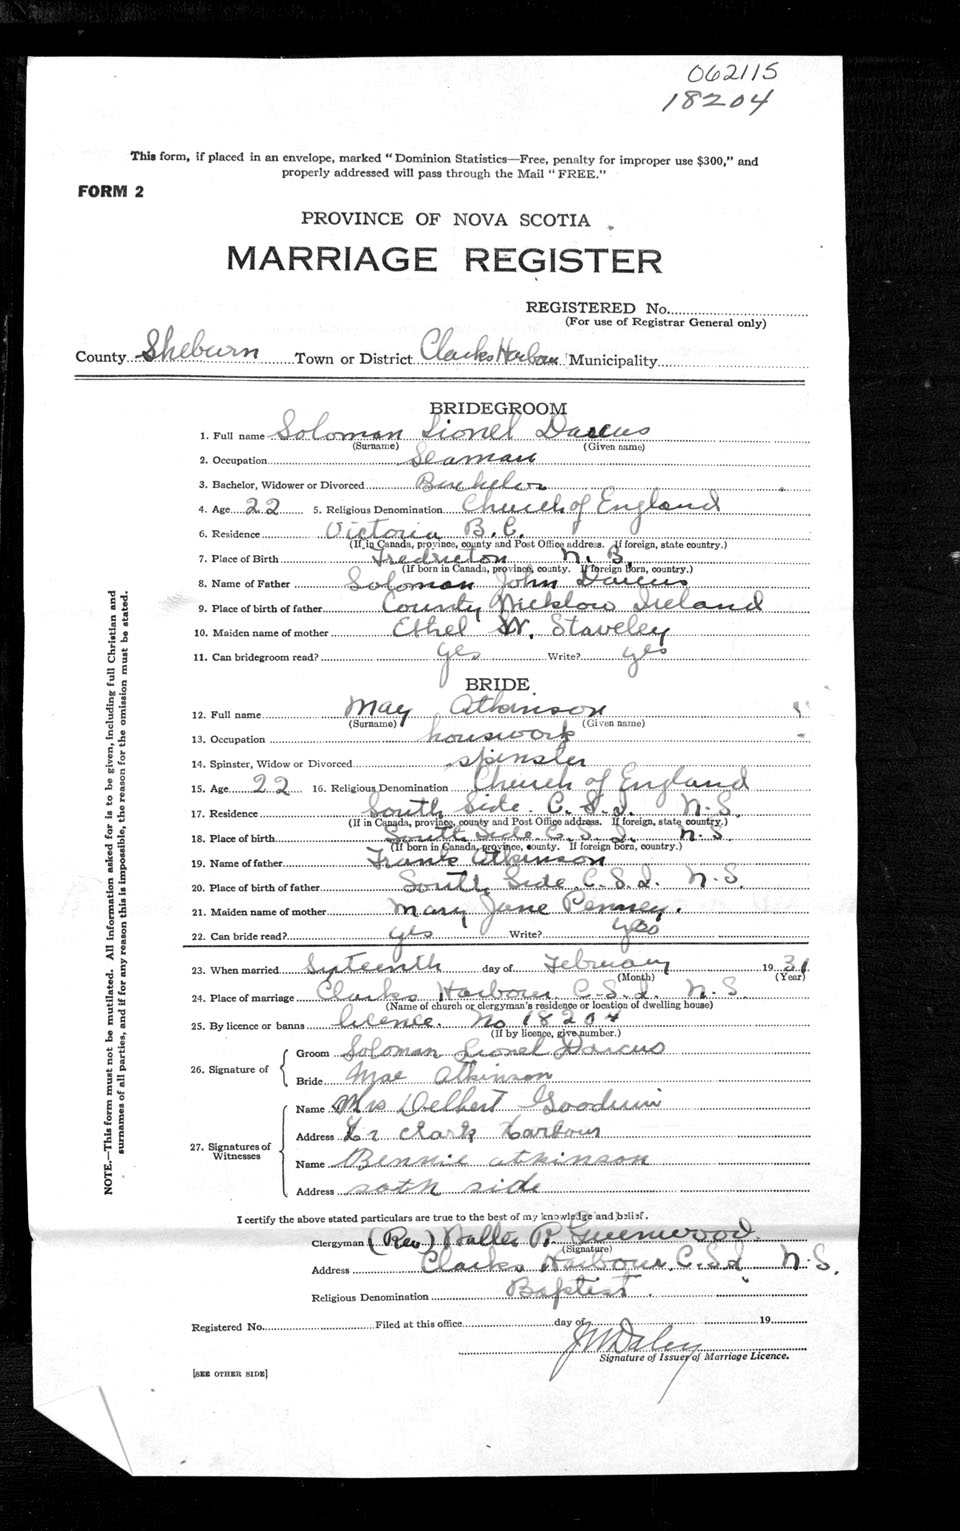 062115
18204
This form, if placed in an envelope, marked "Dominion Statistics—Free, penalty for improper use $300," and
properly addressed will pass through the Mail "FREE."
FORM 2
PROVINCE OF NOVA SCOTIA
MARRIAGE REGISTER
REGISTERED No.
(For use of Registrar General only)
County Sheburn Town or District Clarks Harbour Municipality
BRIDEGROOM
1. Full name Soloman Lionel Darcus
(Surname) (Given name)
2. Occupation Seaman
3. Bachelor, Widower or Divorced Bachelor
4. Age 22 5. Religious Denomination Church of England
6. Residence Victoria B.C.
(If in Canada, province, county and Post Office address. If foreign, state country.)
7. Place of Birth Fredricton N.B.
(If born in Canada, province, county. If foreign Born, country.)
8. Name of Father Soloman John Darcus
9. Place of birth of father County Wicklow Ireland
10. Maiden name of mother Ethel W. Staveley
11. Can bridegroom read? yes Write? yes
BRIDE
12. Full name May Atkinson
(Surname) (Given name)
13. Occupation houswork
14. Spinster, Widow or Divorced spinster
15. Age 22 16. Religious Denomination Church of England
17. Residence South Side C.S.I. N.S.
(If in Canada, province, county and Post Office address. If foreign, state country.)
18. Place of birth South Side C.S.I. N.S.
(If born in Canada, province, county. If foreign born, country.)
19. Name of father Frank Atkinson
20. Place of birth of father South Side C.S.I. N.S.
21. Maiden name of mother Mary Jane Penney.
22. Can bride read? yes Write? yes
23. When married Sixteenth day of February 1931
(Month) (Year)
24. Place of marriage Clarks Harbour C.S.I. N.S.
(Name of church or clergyman's residence or location of dwelling house)
25. By licence or banns licence. No 18204
(If by licence, give number.)
26. Signature of
Groom Soloman Lionel Darcus
Bride Mae Atkinson
27. Signatures of Witnesses
Name Mrs Delbert Goodwin
Address Lr Clark Harbour
Name Bennie atkinson
Address soth side
I certify the above stated particulars are true to the best of my knowledge and belief.
Clergyman (Rev) Walter P. Greenwood
(Signature)
Address Clarks Harbour, C.S.I. N.S.
Religious Denomination Baptist
Registered No. Filed at this office day of 19
J M Daley
Signature of Issuer of Marriage Licence.
[SEE OTHER SIDE]
NOTE.—This form must not be mutilated. All information asked for is to be given, including full Christian and
surnames of all parties, and if for any reason this is impossible, the reason for the omission must be stated.